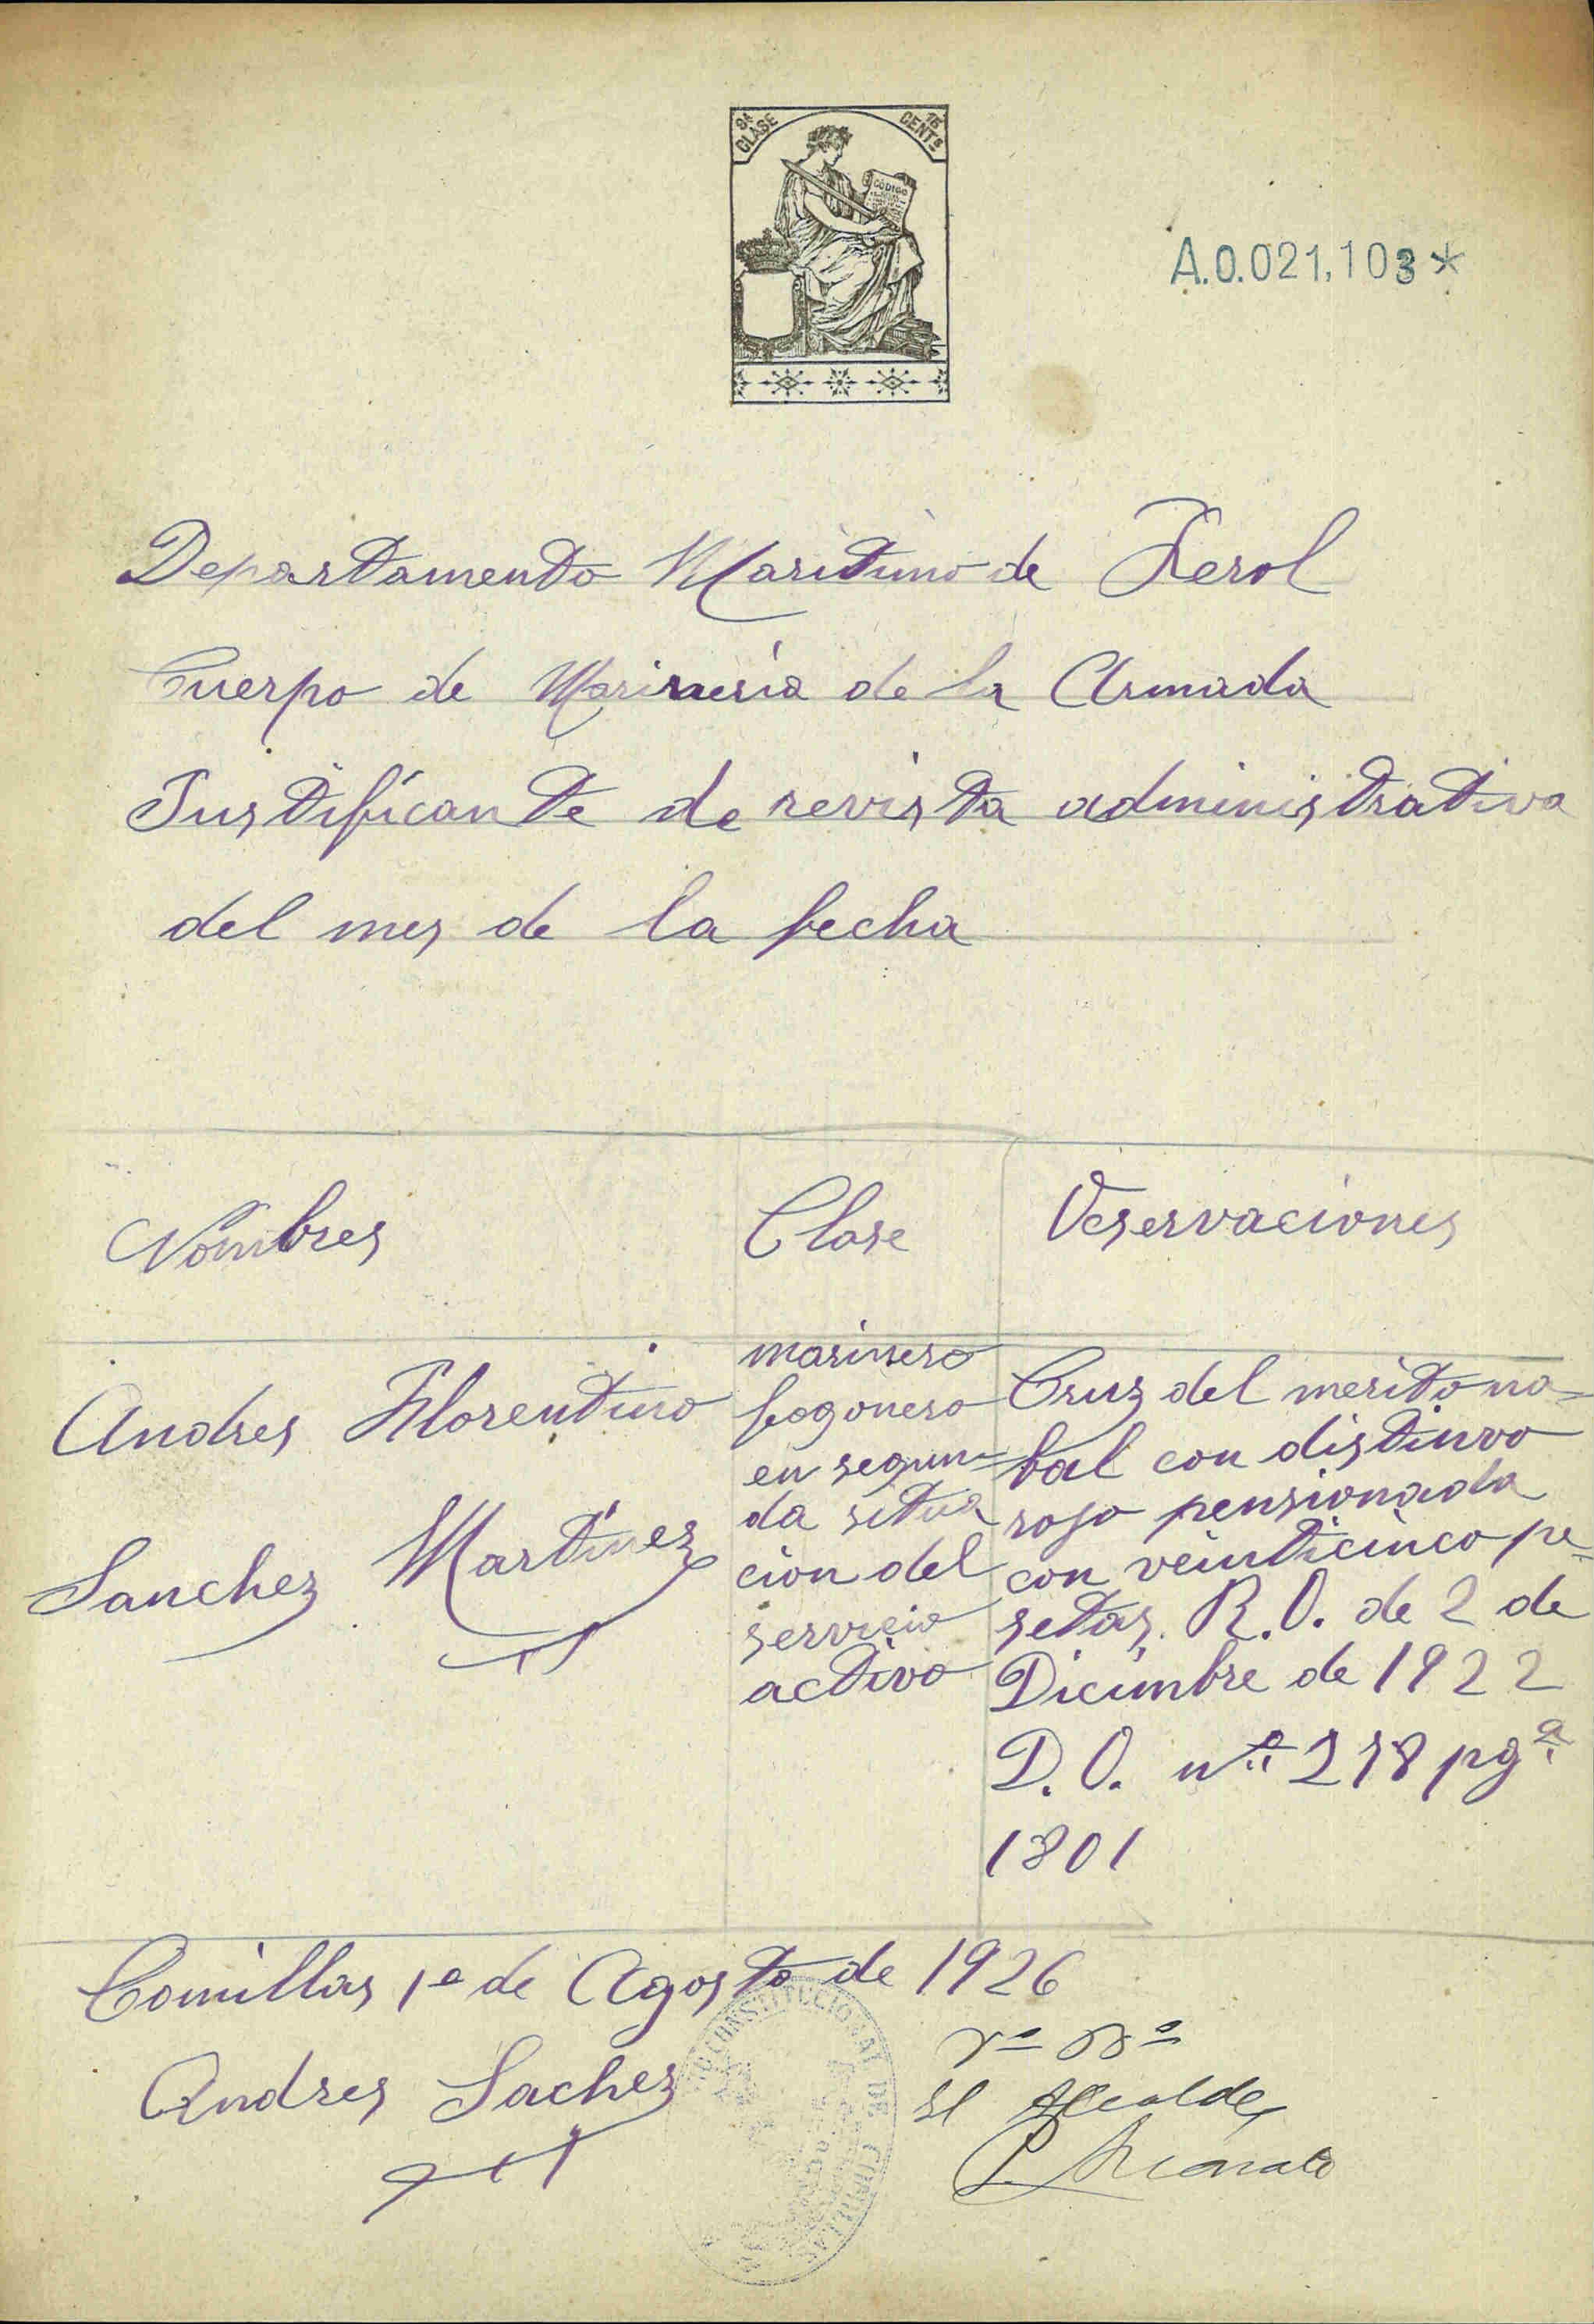 9ª CLASE
15 CENTS
CODIGO
A.0.021,103*
Departamento Maritimo de Ferol
Cuerpo de Marineria de la Armada
Justificante de revista administrativa
del mes de la fecha
Nombres
Clase
Veservaciones
Andres Florentino
Sanchez Martinez
marinero
fogonero
en segun=
da situa
cion del
servicio
activo
Cruz del merito na=
bal con distinvo
rojo pensionada
con veinticinco pe=
setas. R.O. de 2 de
Diciembre de 1922
D.O. nº 278 pgª
1801
Comillas 1º de Agosto de 1926
Andres Sachez
Vº Bº
El Alcalde
CONSTITUCIONAL DE COMILLAS